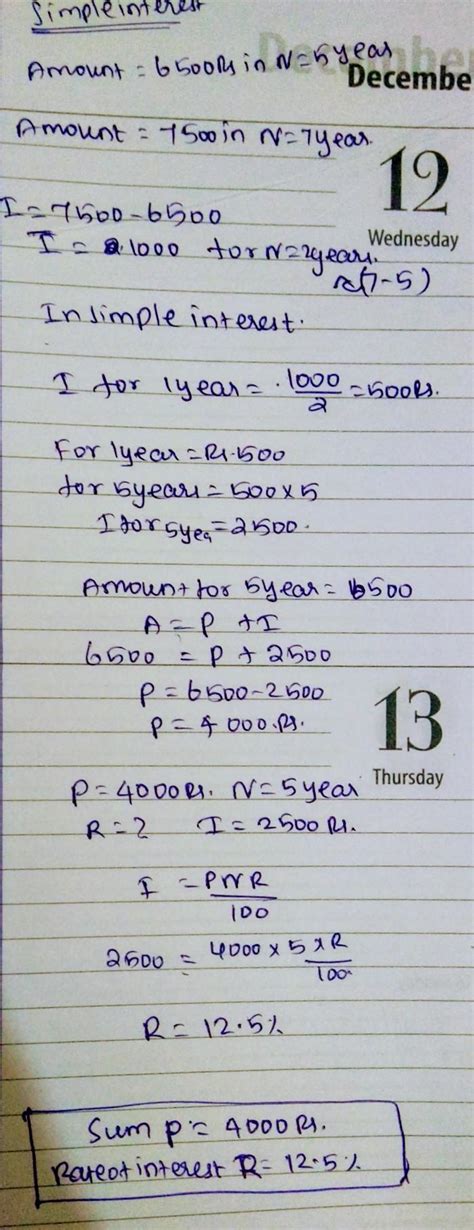 Simple interest
Amount = 6500Rs in N=5year
December
Amount = 7500 in N=7year.
12
Wednesday
I = 7500-6500
I = 1000 for N=2years.
(7-5)
In simple interest.
I for 1year = 1000/2 = 500Rs.
For 1year = Rs.500
for 5years = 500×5
I for 5yea = 2500.
Amount for 5year = 6500
A = P + I
6500 = P + 2500
P = 6500-2500
P = 4000.Rs.
13
Thursday
P = 4000Rs. N = 5year
R = ? I = 2500Rs.
I = PNR/100
2500 = 4000 × 5 × R/100
R = 12.5%
Sum P = 4000Rs.
Rate of interest R = 12.5%